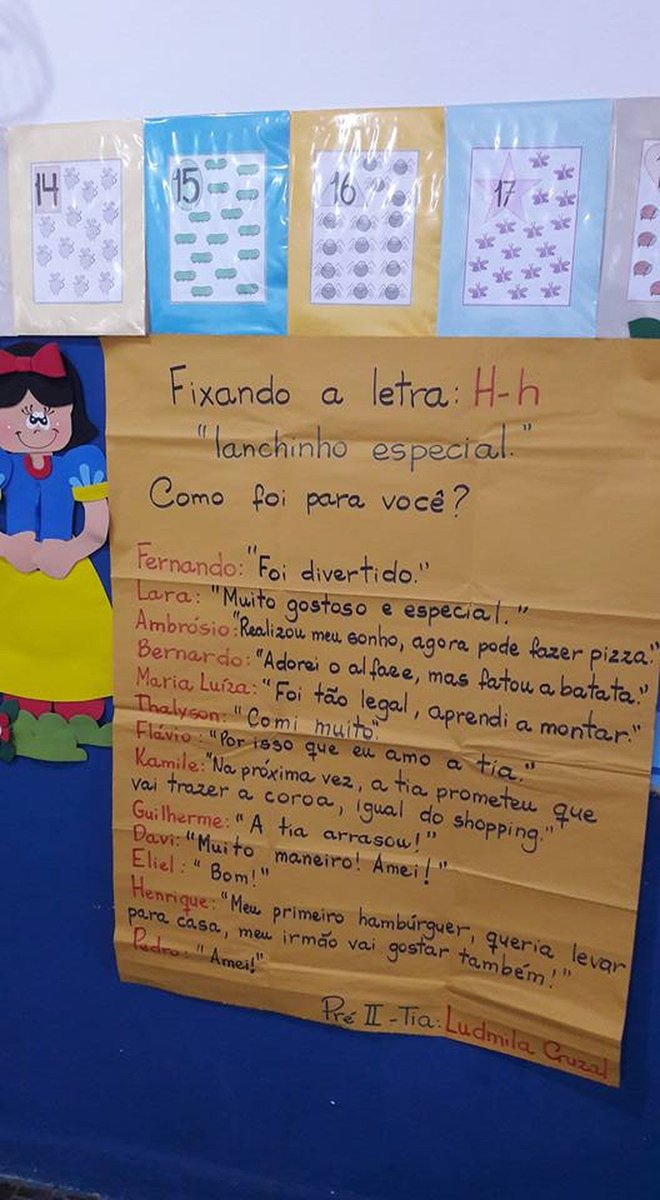 14 15 16 17
Fixando a letra: H-h
"lanchinho especial."
Como foi para você?
Fernando: "Foi divertido."
Lara: "Muito gostoso e especial."
Ambrósio: "Realizou meu sonho, agora pode fazer pizza."
Bernardo: "Adorei o alface, mas fatou a batata."
Maria Luíza: "Foi tão legal, aprendi a montar."
Thalyson: "Comi muito".
Flávio: "Por isso que eu amo a tia."
Kamile: "Na próxima vez, a tia prometeu que
vai trazer a coroa, igual do shopping."
Guilherme: "A tia arrasou!"
Davi: "Muito maneiro! Amei!"
Eliel: "Bom!"
Henrique: "Meu primeiro hambúrguer, queria levar
para casa, meu irmão vai gostar também!"
Pedro: "Amei!"
Pré II - Tia: Ludmila Cruzal